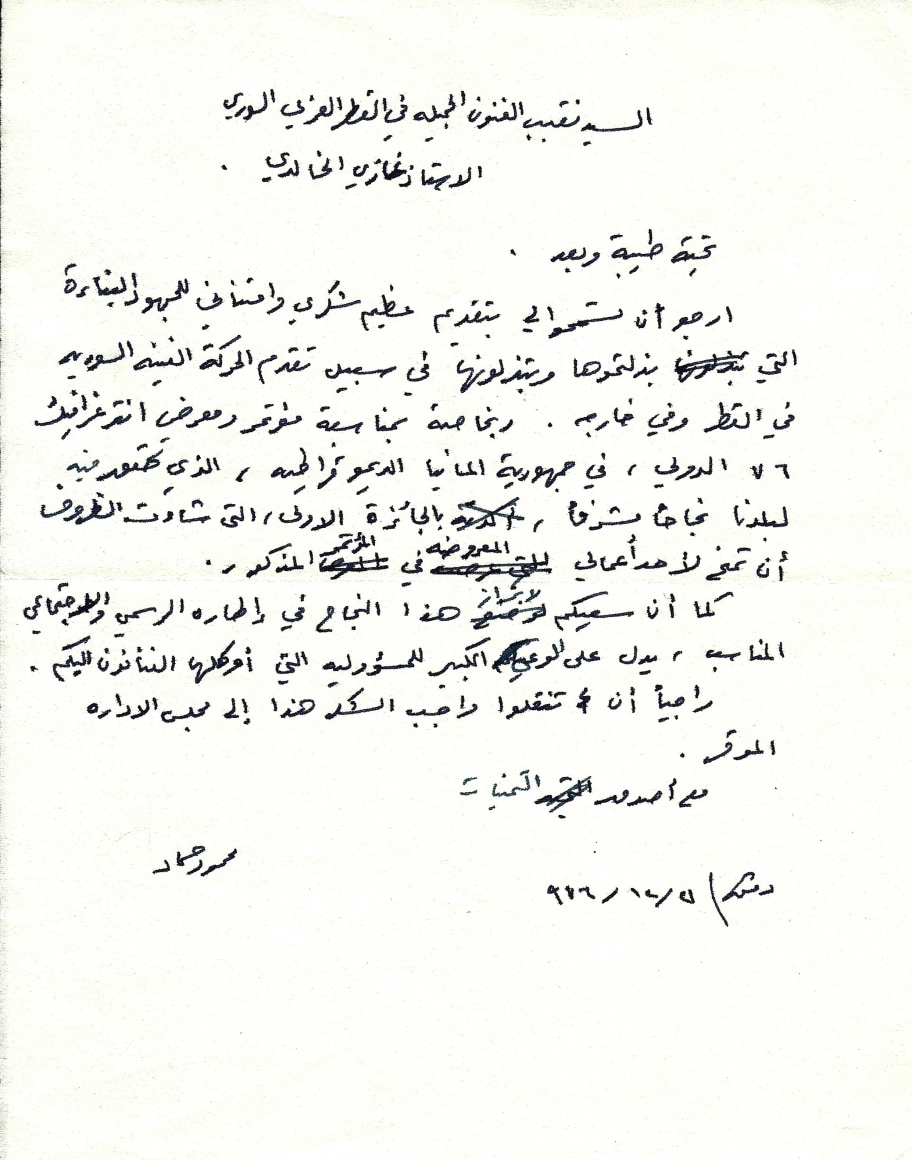 السيد نقيب الفنون الجميله في القطر العربي السوري
الاستاذ غازي الخالدي .
تحية طيبة وبعد .
ارجو أن تسمحوا لي بتقديم عظيم شكري وامتناني للجهود البناءة
التي بذلتموها وتبذلونها في سبيل تقدم الحركة الفنيه السوريه
في القطر وفي خارجه . وبخاصة بمناسبة مؤتمر ومعرض انترغرافيك
٧٦ الدولي ، في جمهورية المانيا الديموقراطيه ، الذي تحقق فيه
لبلدنا نجاحاً مشرفاً ، بالجائزة الاولى ، التي شاءت الظروف
أن تمنح لأحد أعمالي المعروضه في المؤتمر المذكور .
كما أن سعيكم لابراز هذا النجاح في إطاره الرسمي والاجتماعي
المناسب ، يدل على الوعي الكبير للمسؤوليه التي أوكلها الفنانون اليكم .
راجياً أن تنقلوا واجب الشكر هذا إلى مجلس الاداره
الموقر .
مع أصدق التمنيات
محمود حماد
دمشق / ١٢ / ٩٧٦